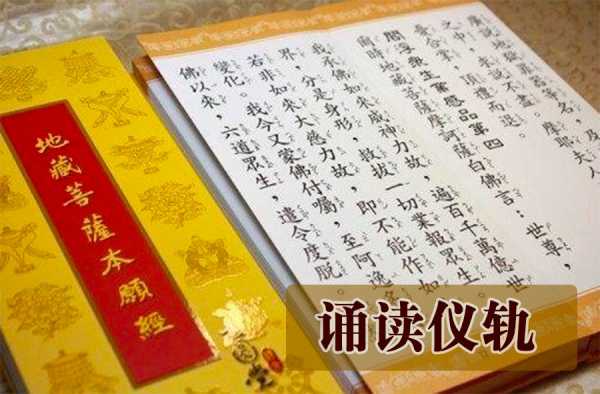 廣說地獄罪器等名，及
之中，求說不盡。摩耶夫人
憂合掌，頂禮而退。
閻浮眾生業感品第四
爾時地藏菩薩摩訶薩白佛言：世尊，
我承佛如來威神力故，遍百千萬億世
界，分是身形，救拔一切業報眾生。
若非如來大慈力故，即不能作如
變化。我今又蒙佛付囑，至阿逸
佛以來，六道眾生，遣令度脫。
地藏菩薩本願經
诵读仪轨